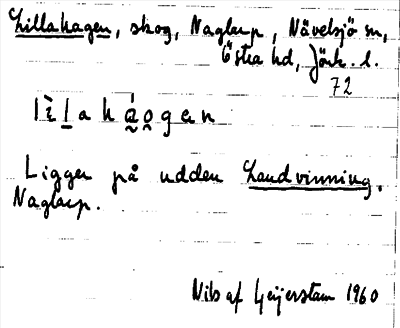 Lillahagen, skog, Naglarp, Nävelsjö sn,
Östra hd, Jönk. l.
72
lìlahá̰o̰gen
Ligger på udden Landvinning.
Naglarp.
Nils af Geijerstam 1960